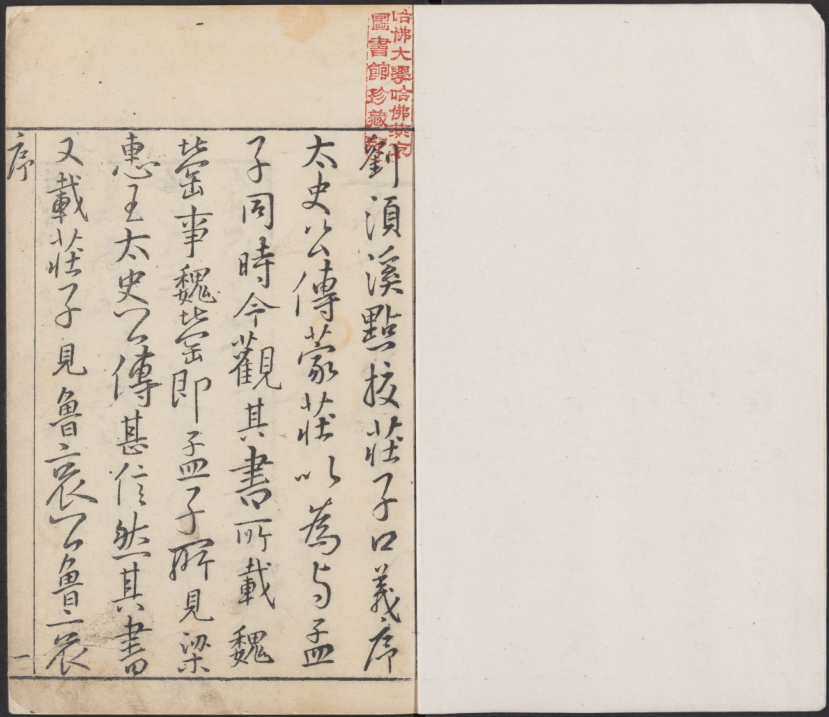 哈佛大學哈佛燕京
圖書館珍藏印
劉須溪點校莊子口義序
太史公傳蒙莊以為与孟
子同時今觀其書所載魏
罃事魏罃即孟子所見梁
惠王太史公傳甚信然其書
又載莊子見魯哀公魯哀
序
一